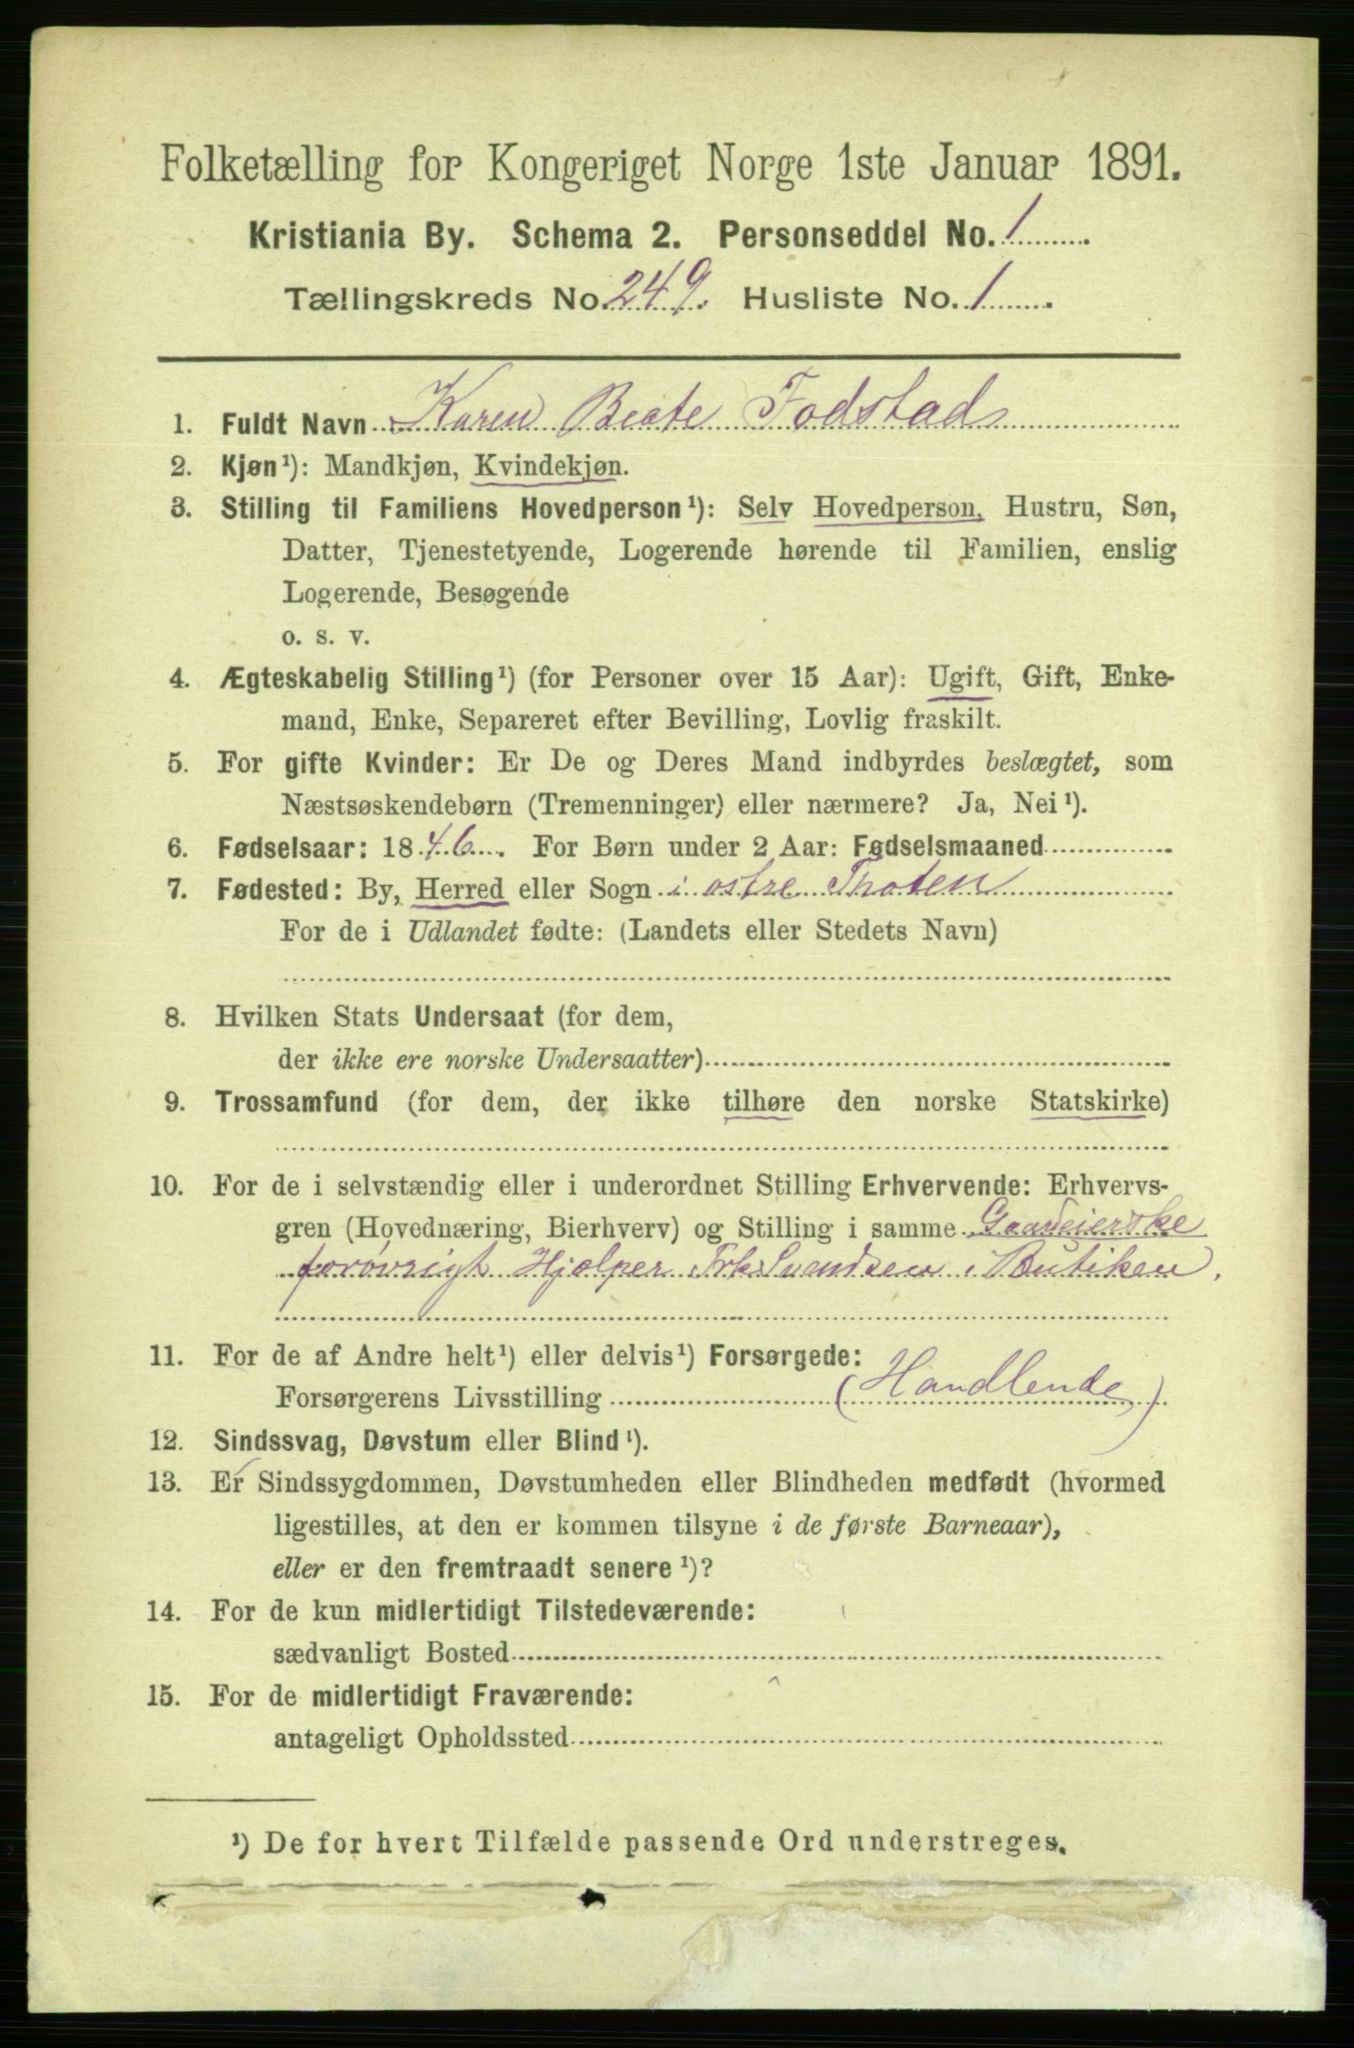 Folketælling for Kongeriget Norge 1ste Januar 1891.
Kristiania By. Schema 2. Personseddel No. 1
Tællingskreds No. 249. Husliste No. 1
1. Fuldt Navn Karen Beate Fodstad
2. Kjøn¹): Mandkjøn, Kvindekjøn.
3. Stilling til Familiens Hovedperson¹): Selv Hovedperson, Hustru, Søn,
Datter, Tjenestetyende, Logerende hørende til Familien, enslig
Logerende, Besøgende
o. s. v.
4. Ægteskabelig Stilling¹) (for Personer over 15 Aar): Ugift, Gift, Enke-
mand, Enke, Separeret efter Bevilling, Lovlig fraskilt.
5. For gifte Kvinder: Er De og Deres Mand indbyrdes beslægtet, som
Næstsøskendebørn (Tremenninger) eller nærmere? Ja, Nei¹).
6. Fødselsaar: 1846. For Børn under 2 Aar: Fødselsmaaned
7. Fødested: By, Herred eller Sogn i ostre Thoten
For de i Udlandet fødte: (Landets eller Stedets Navn)
8. Hvilken Stats Undersaat (for dem,
der ikke ere norske Undersaatter)
9. Trossamfund (for dem, der ikke tilhøre den norske Statskirke)
10. For de i selvstændig eller i underordnet Stilling Erhvervende: Erhvervs-
gren (Hovednæring, Bierhverv) og Stilling i samme Gaardeierske
forøvrigt Hjælper Frk Svendsen i Butiken.
11. For de af Andre helt¹) eller delvis¹) Forsørgede:
Forsørgerens Livsstilling (Handlende)
12. Sindssvag, Døvstum eller Blind¹).
13. Er Sindssygdommen, Døvstumheden eller Blindheden medfødt (hvormed
ligestilles, at den er kommen tilsyne i de første Barneaar),
eller er den fremtraadt senere¹)?
14. For de kun midlertidigt Tilstedeværende:
sædvanligt Bosted
15. For de midlertidigt Fraværende:
antageligt Opholdssted
¹) De for hvert Tilfælde passende Ord understreges.